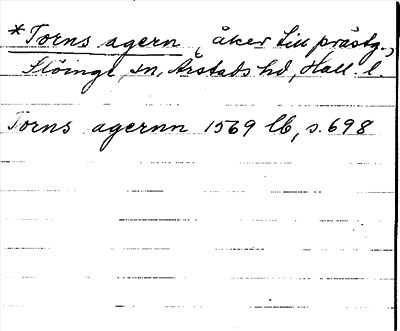 *Torns agern, åker till prästg.,
Slöinge, sn, Årstads hd, Hall. l.
Torns agernn 1569 lb, s. 698